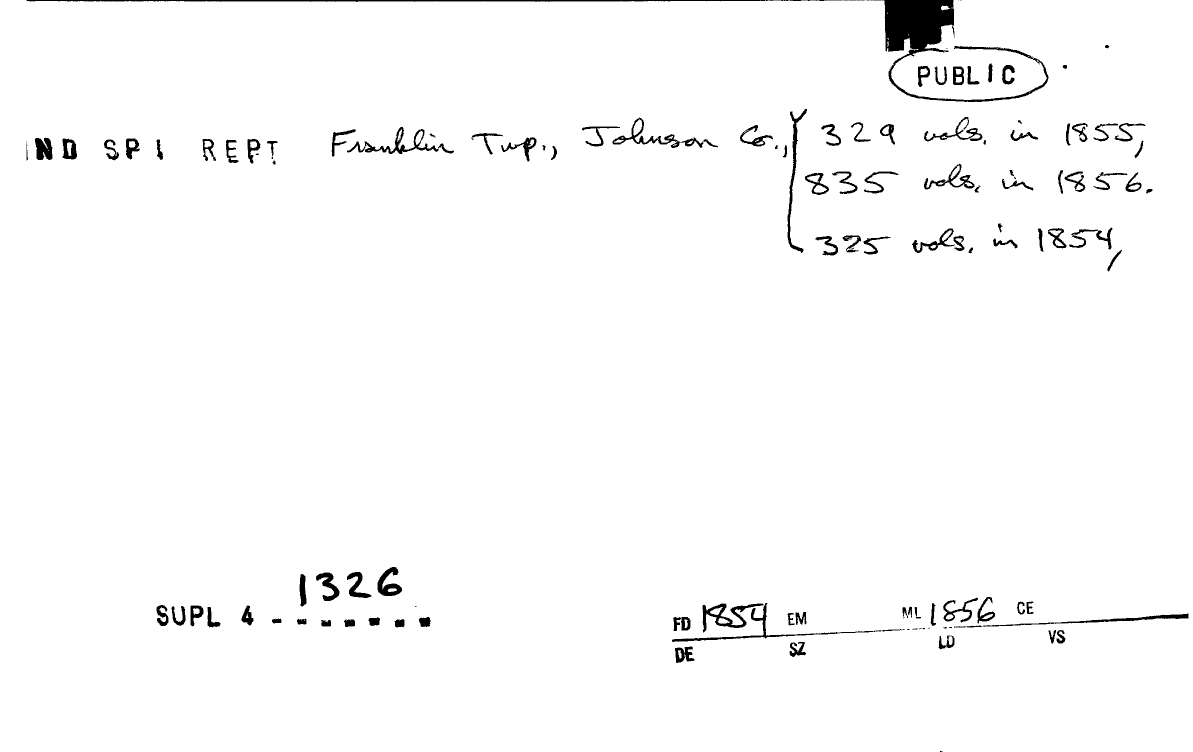 PUBLIC
IND SPI REPT Franklin Twp., Johnson Co., 329 vols. in 1855,
835 vols. in 1856.
325 vols. in 1854,
1326
SUPL 4 - - - - - - -
FD 1854 EM ML 1856 CE
DE SZ LD VS